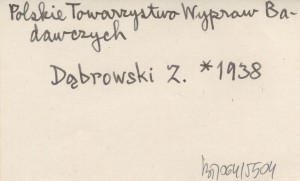 Polskie Towarzystwo Wypraw Ba-
dawczych
Dąbrowski Z. *1938